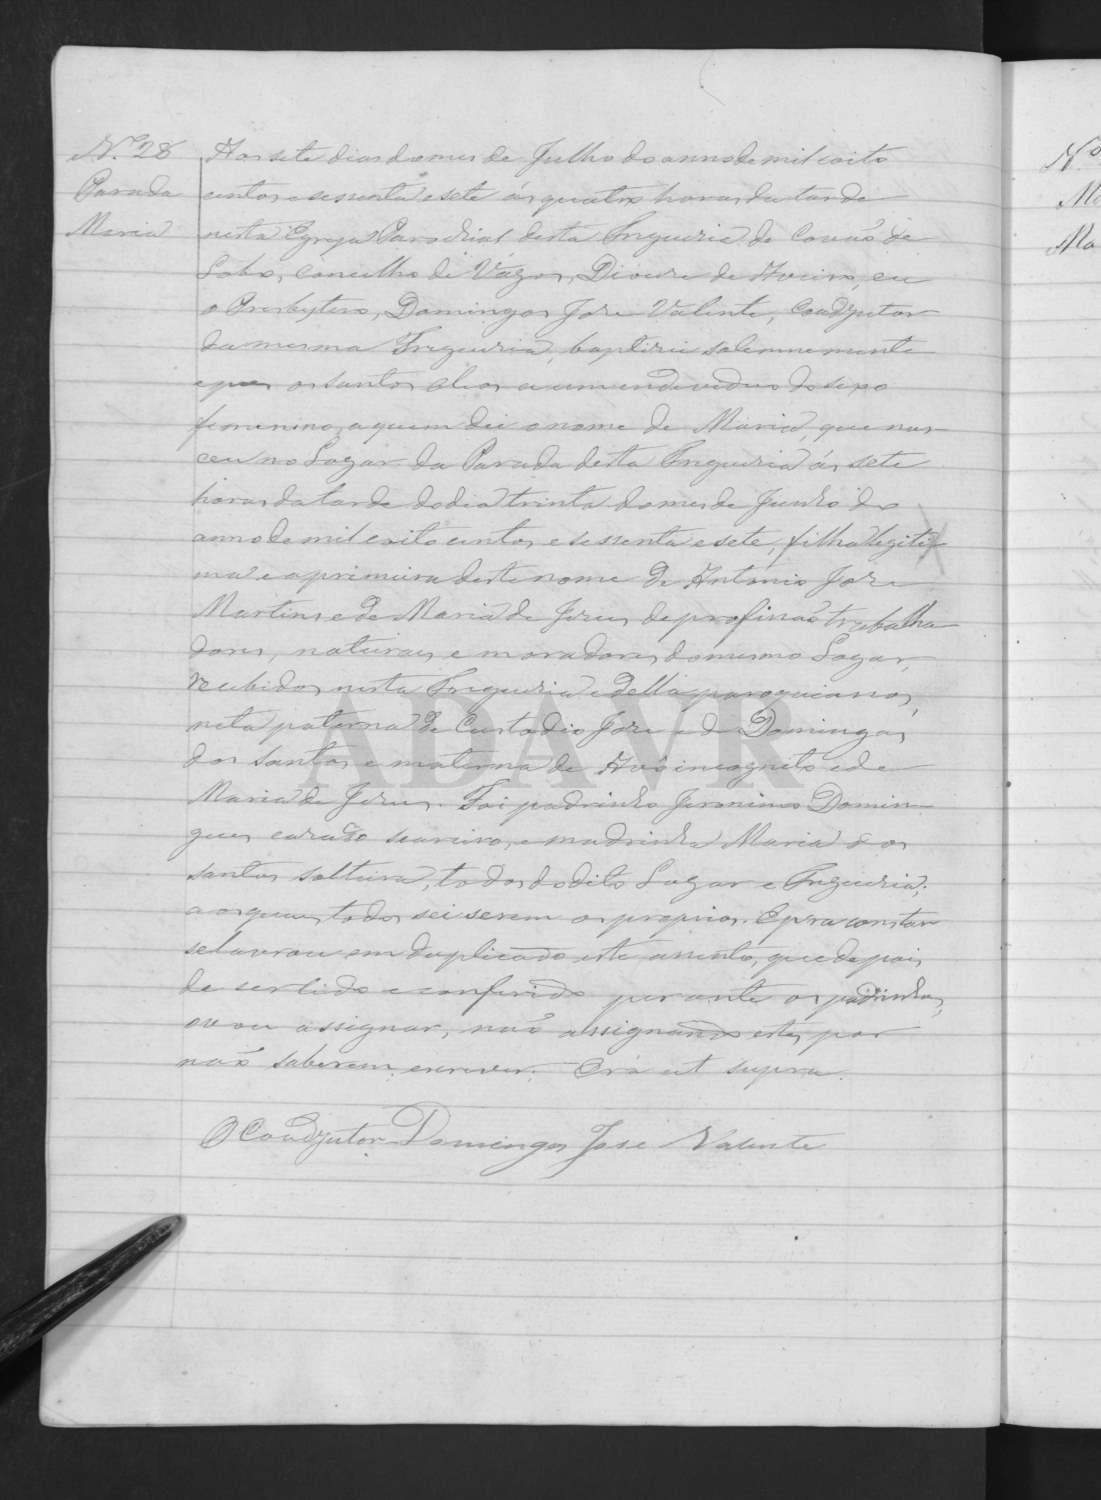 N.º 28
Parada
Maria
Aos sete dias do mes de Julho do anno de mil oito
centos e sessenta e sete ás quatro horas da tarde
nesta Egreja Parochial desta Freguezia de Covaõ do
Lobo, concelho de Vagos, Diocese de Aveiro, eu
o Presbytero, Domingos Jose Valente, Coadjutor
da mesma Freguezia, baptizei solemnemente
e puz os santos oleos a um endeviduo do sexo
femenino, a quem dei o nome de Maria, que nas-
ceu no Lugar da Parada desta Freguezia ás sete
horas da tarde do dia trinta do mes de Junho do
anno de mil oito centos e sessenta e sete, filha legiti-
ma e a primeira deste nome de Antonio Jose
Martins e de Maria de Jesus de profissaõ trabalha
dores, naturaes e moradores do mesmo Lugar,
recebidos nesta Freguezia e della paroquianos,
neta paterna de Custodio Jose e de Domingas
dos Santos e materna de Avô incognito e de
Maria de Jesus. Foi padrinho Jeronimo Domin-
gues casado seareiro, e madrinha Maria dos
santos solteira, todos do dito Lugar e Freguezia;
aos quaes todos sei serem os proprios. E para constar
se lavrou em duplicado este assento, que depois
de ser lido e conferido perante os padrinhos,
vou assignar, naõ assignando estes por
naõ saberem escrever. Era ut supra.
O Coadjutor Domingos Jose Valente
ADAVR
Nº
Ma
Ma